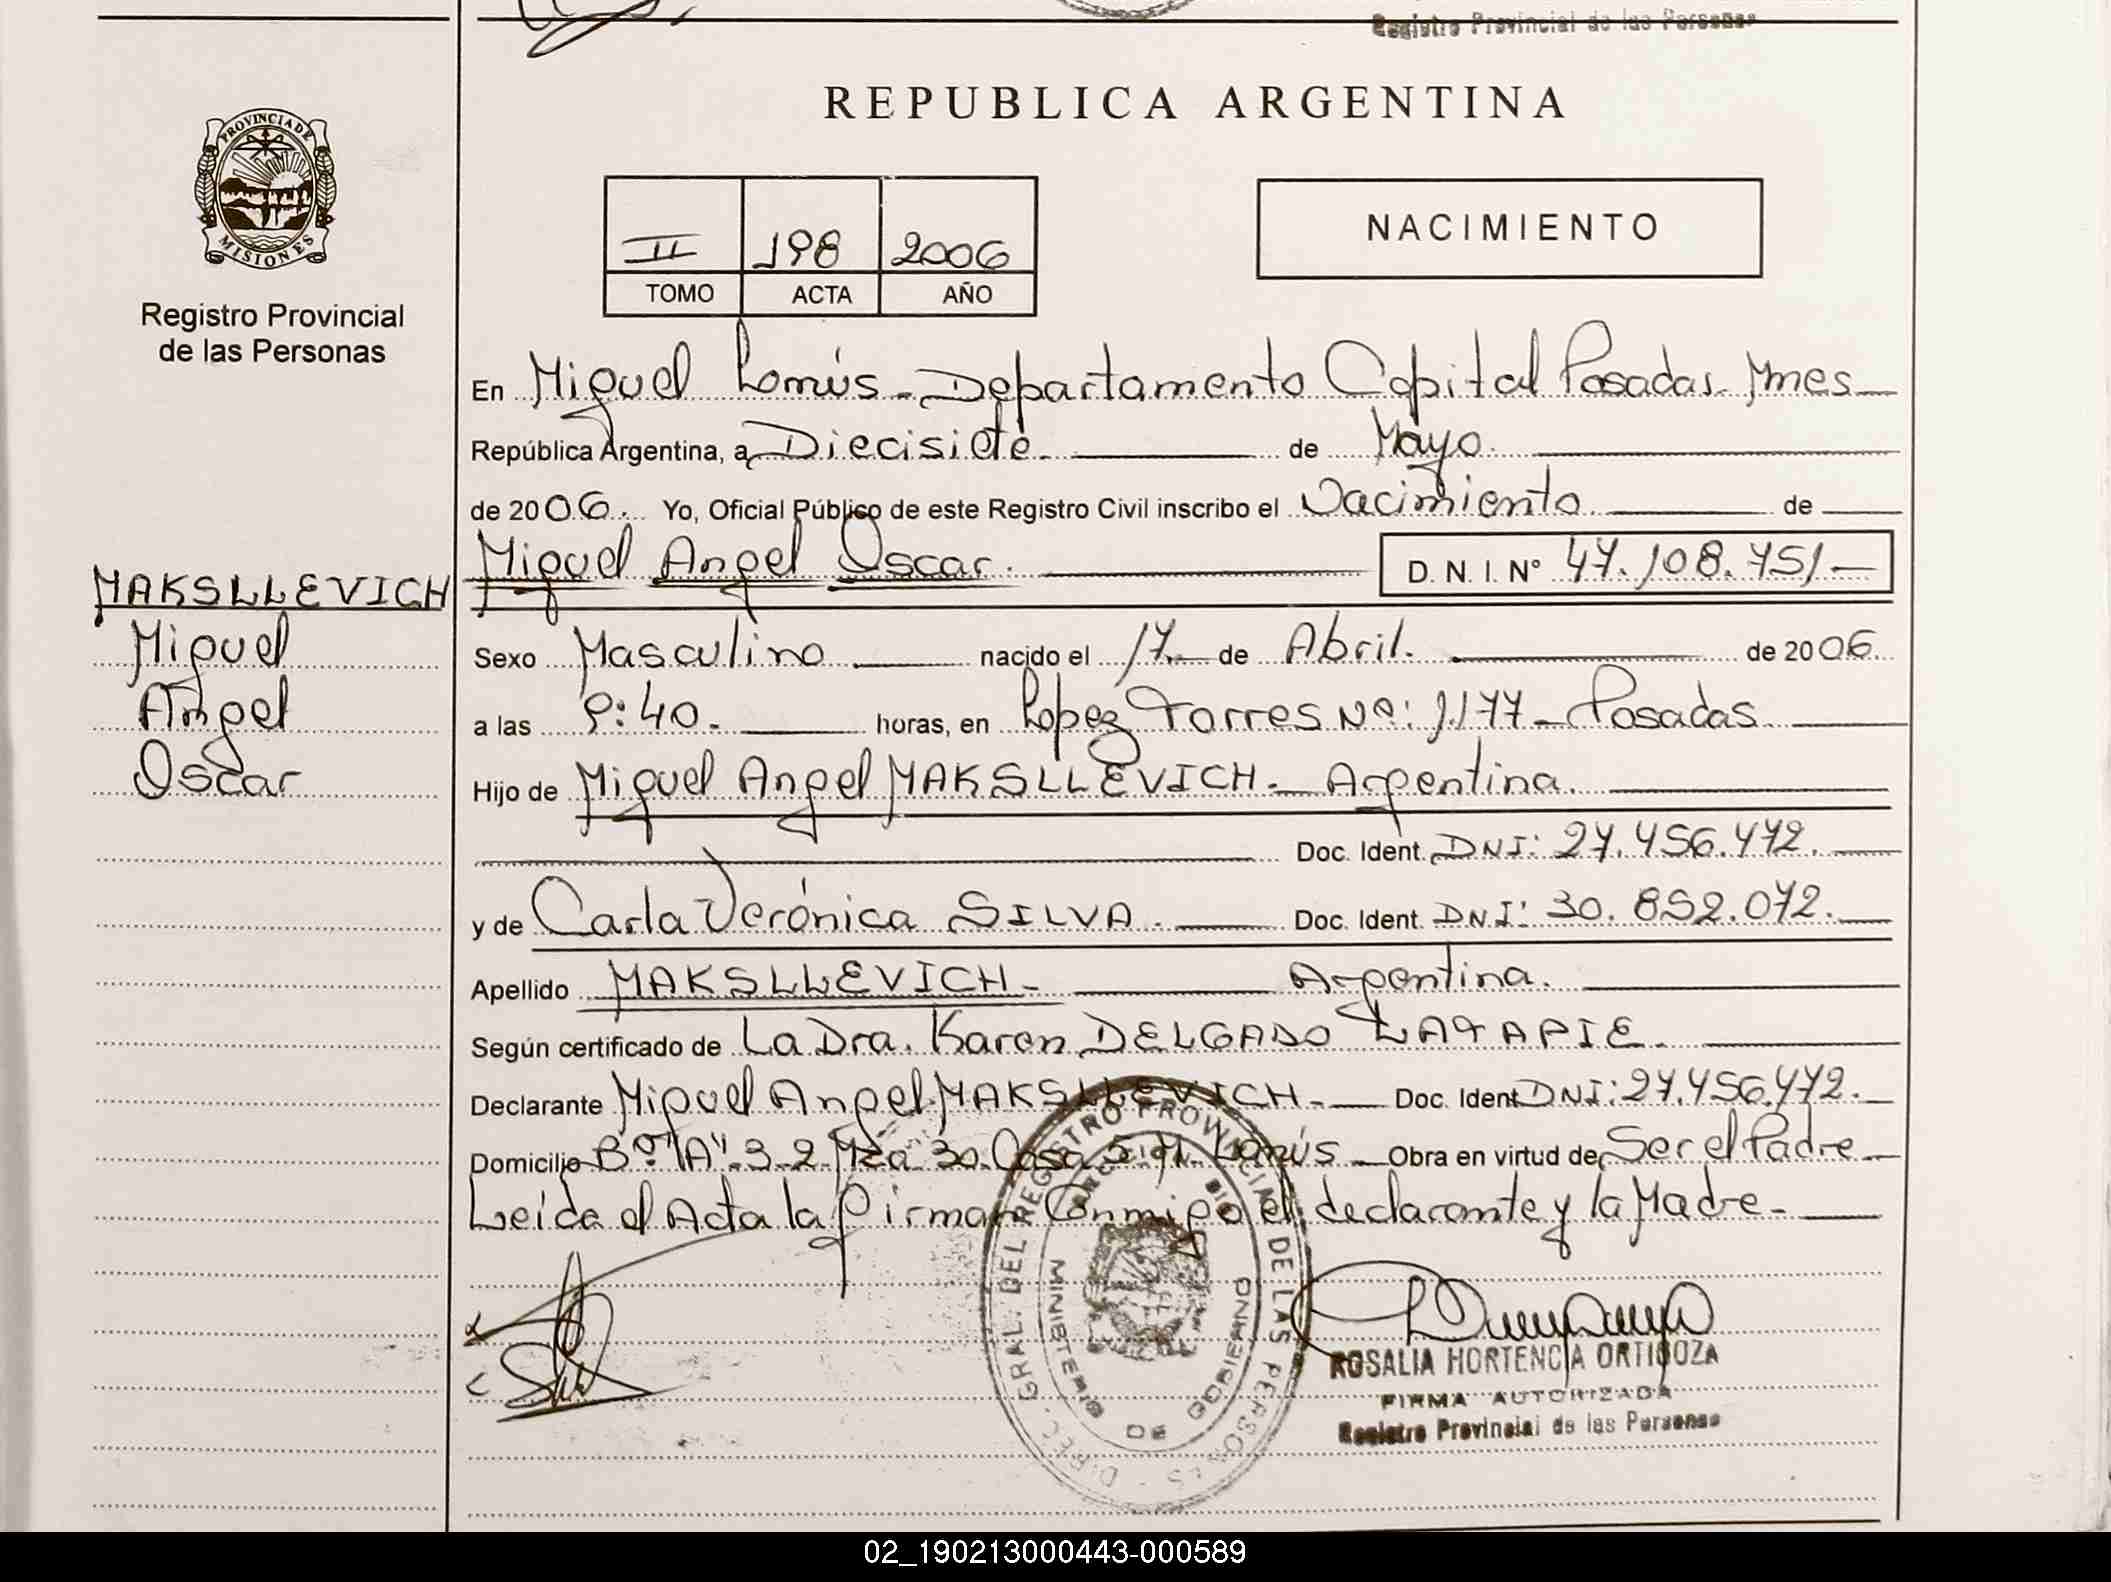 Registro Provincial de las Personas
REPUBLICA ARGENTINA
PROVINCIA DE
MISIONES
Registro Provincial
de las Personas
II 198 2006
TOMO ACTA AÑO
NACIMIENTO
En Miguel Lanús - Departamento Capital Posadas - Mnes
República Argentina, a Diecisiete de Mayo
de 2006. Yo, Oficial Público de este Registro Civil inscribo el Nacimiento de
Miguel Angel Oscar. D. N. I. Nº 47.108.751
MAKSLLEVICH
Miguel
Angel
Oscar
Sexo Masculino nacido el 17 de Abril. de 2006
a las 9:40. horas, en Lopez Torres Nº: 1177 - Posadas
Hijo de Miguel Angel MAKSLLEVICH - Argentina.
Doc. Ident. DNI: 27.456.472.
y de Carla Verónica SILVA. Doc. Ident. DNI: 30.852.072.
Apellido MAKSLLEVICH - Argentina.
Según certificado de La Dra. Karen DELGADO LATAPIE.
Declarante Miguel Angel MAKSLLEVICH - Doc. Ident DNI: 27.456.472.
Domicilio Bº "A" 3-2 Mza 30 Casa 5 M. Lanús Obra en virtud de Ser el Padre
Leída el Acta la firman Conmigo el declarante y la Madre -
DIREC. GRAL. DEL REGISTRO PROVINCIAL DE LAS PERSONAS
MINISTERIO DE GOBIERNO
ROSALIA HORTENCIA ORTIGOZA
FIRMA AUTORIZADA
Registro Provincial de las Personas
02_190213000443-000589